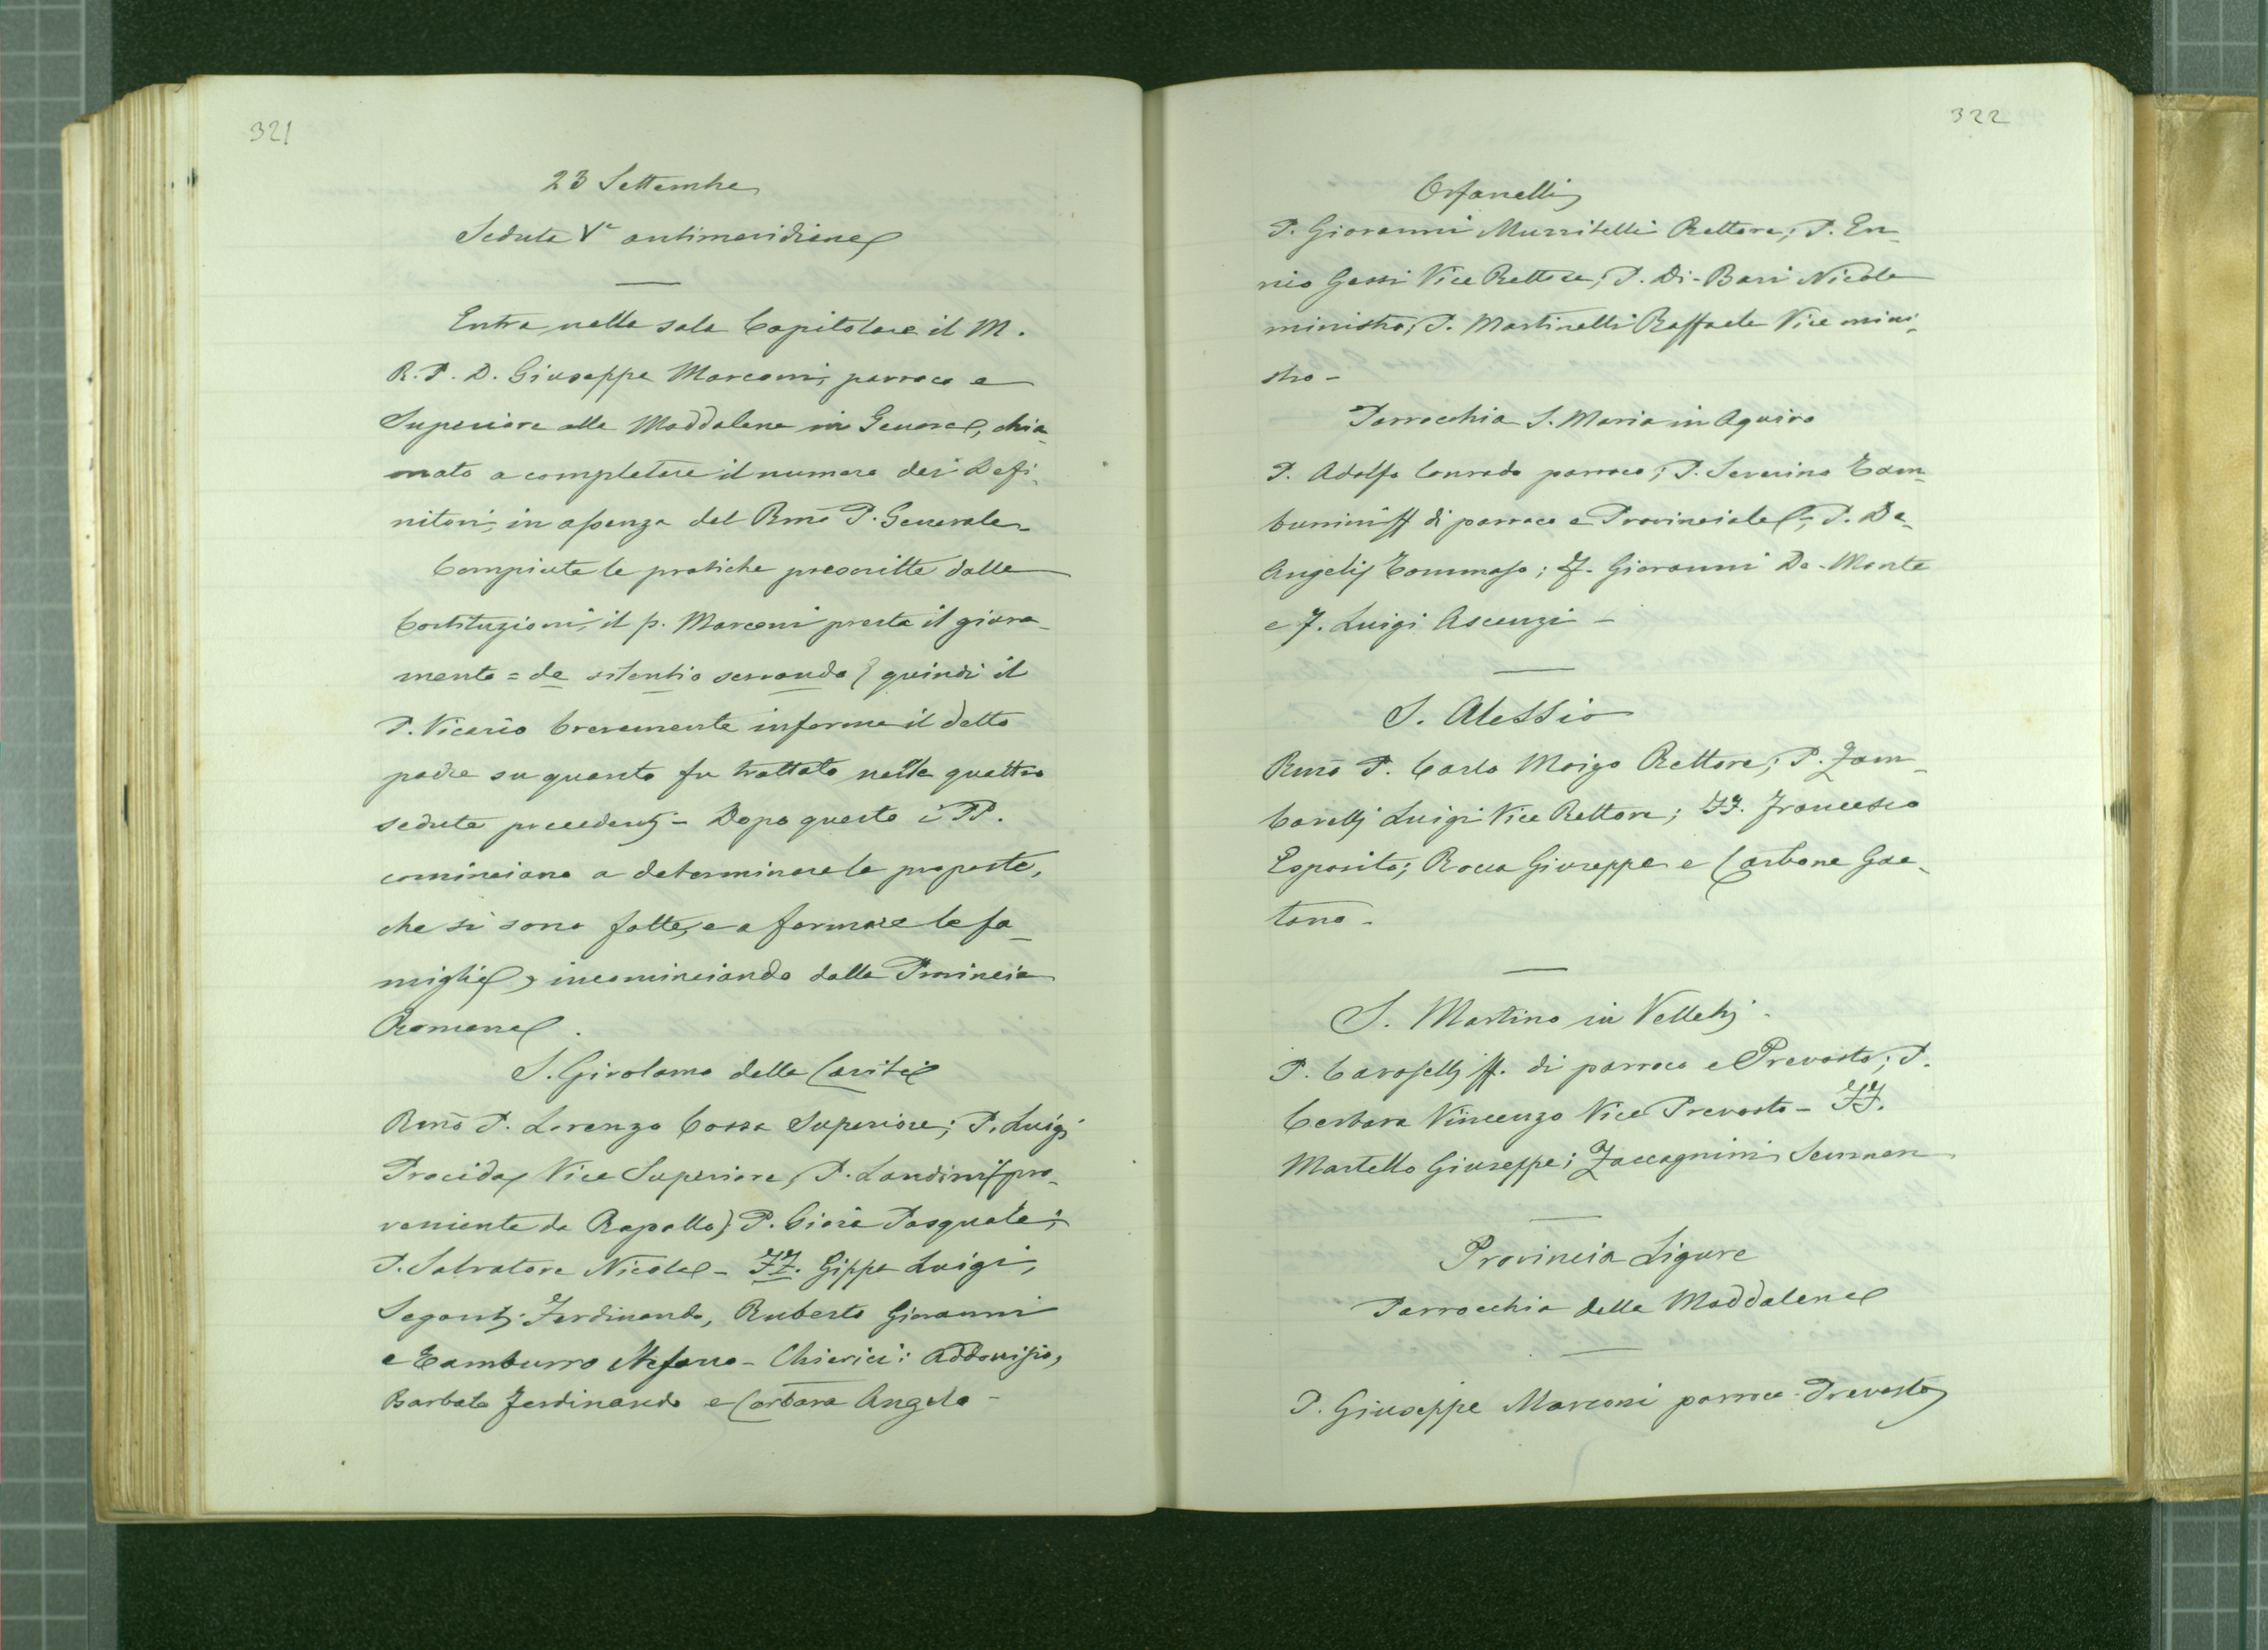 321
23 Settembre
Seduta Vª antimeridiana
Entra nella sala Capitolare il M.
R. P. D. Giuseppe Marconi, parroco e
Superiore alla Maddalena in Genova, chia-
mato a completare il numero dei Defi-
nitori, in assenza del Rmo P. Generale
Compiute le pratiche prescritte dalle
Costituzioni, il p. Marconi presta il giura-
mento = de silentio servando; quindi il
P. Vicario brevemente informa il detto
padre su quanto fu trattato nelle quattro
sedute precedenti - Dopo questo i PP.
cominciano a determinare le proposte,
che si sono fatte, e a formare le fa-
miglie, incominciando dalla Provincia
Romana.
S. Girolamo della Carità
Rmo P. Lorenzo Cossa Superiore; P. Luigi
Procida, Vice Superiore, P. Landini (pro-
veniente da Rapallo) P. Gioia Pasquale;
P. Salvatore Nicola - FF. Gippa Luigi,
Seganti Ferdinando, Ruberto Giovanni
e Tamburro Stefano - Chierici: Addonisio,
Barbato Ferdinando e Cerbara Angelo -
322
Orfanelli
P. Giovanni Muzzitelli Rettore; P. En-
nio Gessi Vice Rettore; P. Di-Bari Nicola
ministro; P. Martinelli Raffaele Vice mini-
stro -
Parrocchia S. Maria in Aquiro
P. Adolfo Conrado parroco; P. Severino Tam-
burrini ff di parroco e Provinciale; P. De-
Angelis Tommaso; F. Giovanni De-Monte
e F. Luigi Ascenzi -
S. Alessio
Rmo P. Carlo Moizo Rettore; P. Zam-
barelli Luigi Vice Rettore; FF. Francesco
Esposito; Rocca Giuseppe e Carbone Gae-
tano -
S. Martino in Velletri -
P. Caroselli ff. di parroco e Prevosto; P.
Cerbara Vincenzo Vice Prevosto - FF.
Martello Giuseppe; Zaccagnini Sennen
Provincia Ligure
Parrocchia della Maddalena
P. Giuseppe Marconi parroco - Prevosto